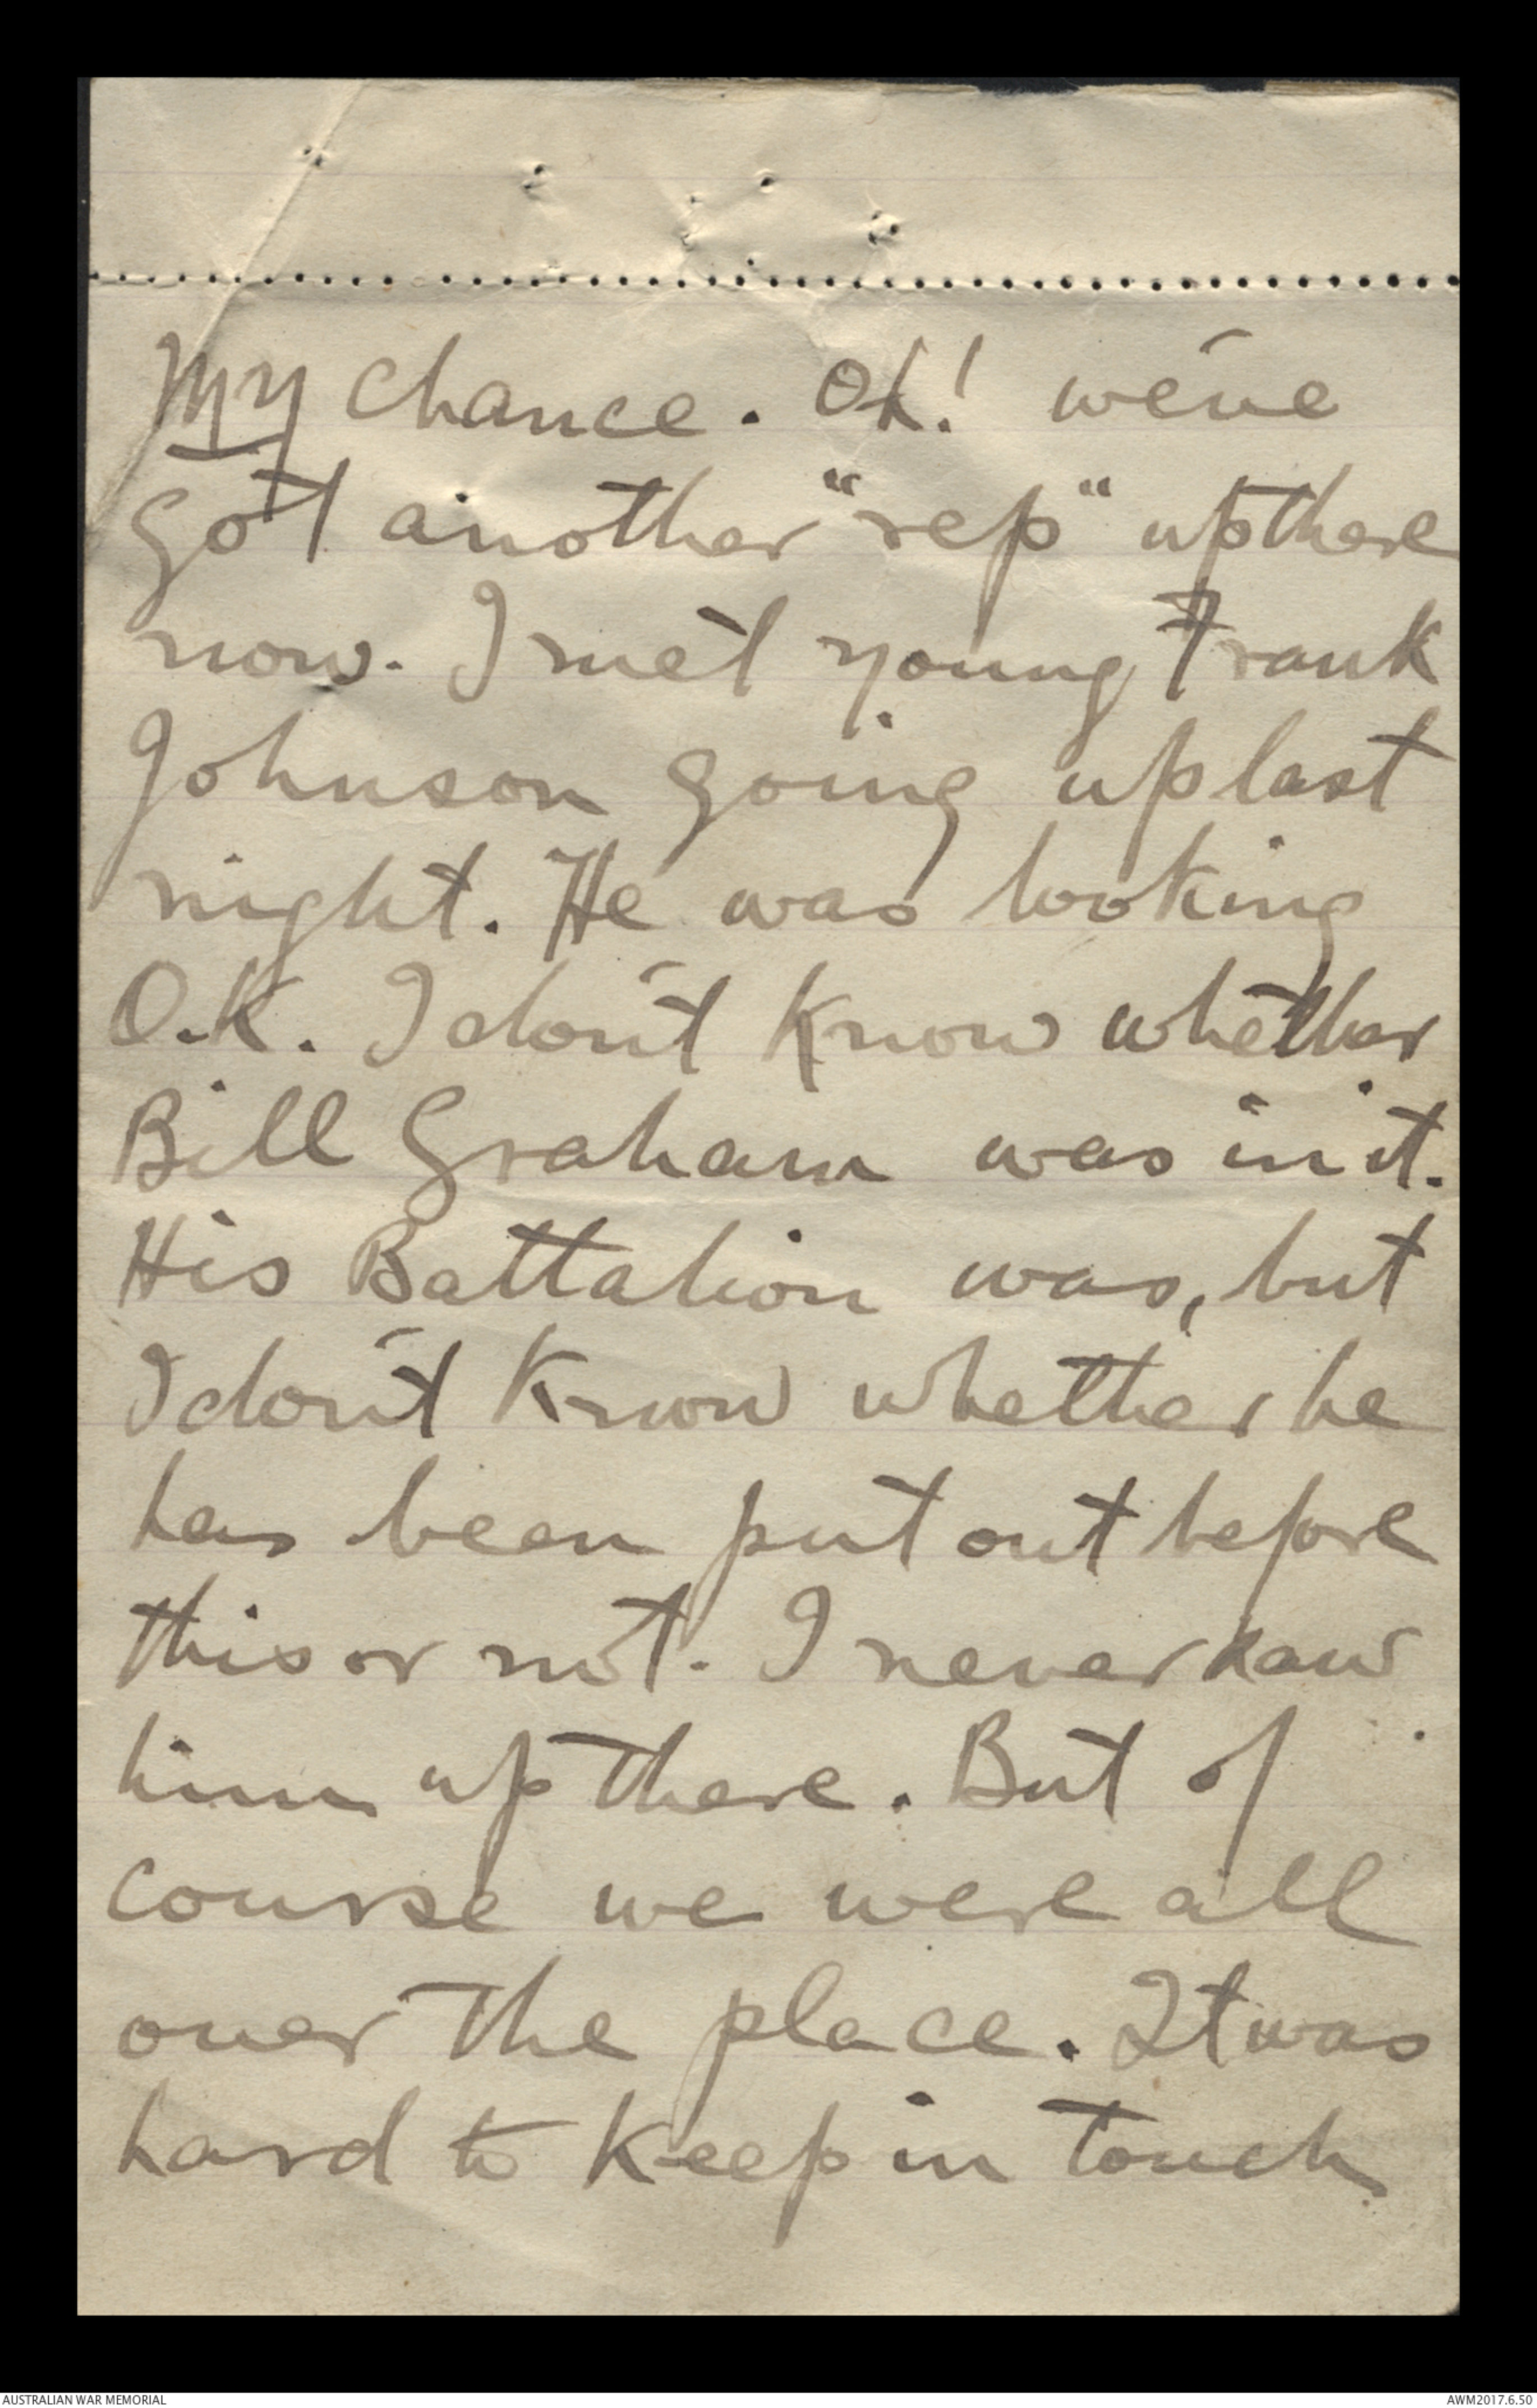 My chance. Oh! we've
got another "rep" up there
now. I met young Frank
Johnson going up last
night. He was looking
O.K. I don't know whether
Bill Graham was in it.
His Battalion was, but
I don't know whether he
has been put out before
this or not. I never saw
him up there. But of
course we were all
over the place. It was
hard to keep in touch
AUSTRALIAN WAR MEMORIAL
AWM2017.6.50